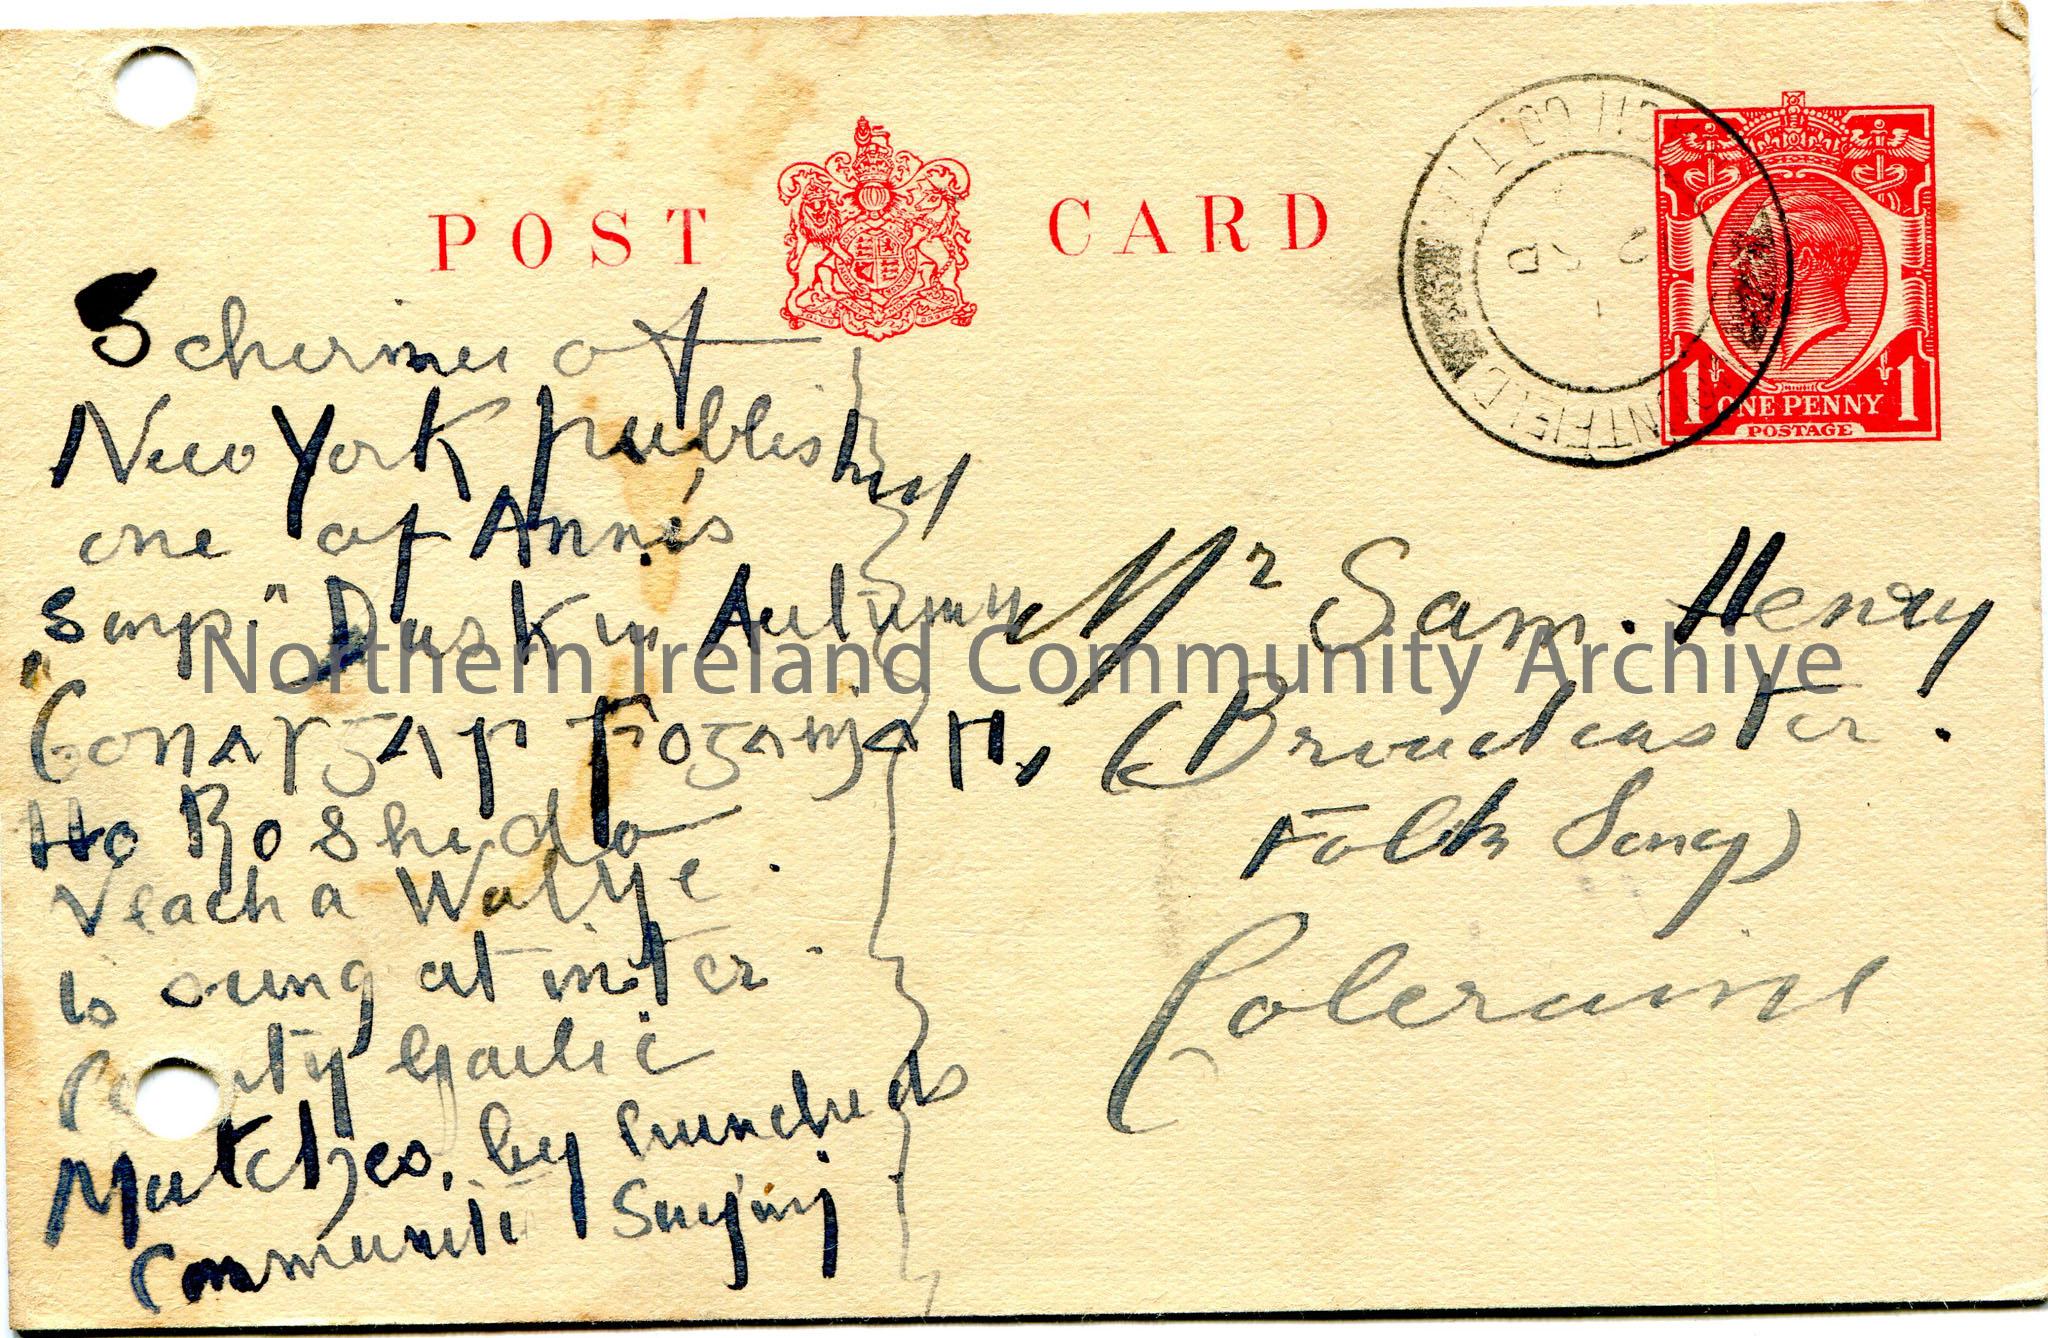 POST CARD
1 ONE PENNY 1
POSTAGE
Schirmer of
New York published
one of Annés
songs "Dusk in Autumn
"
Ho Ro She do
Veach a Wallye.
is sung at inter
County Gaelic
Matches, by hundreds
Communit Singing
Mr Sam. Henry
(Broadcaster.
Folk Songs)
Coleraine
Northern Ireland Community Archive